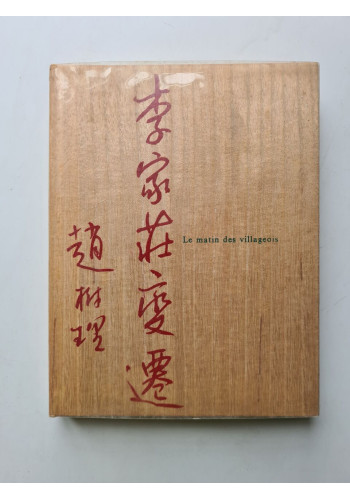 李家莊變遷
趙树理
Le matin des villageois